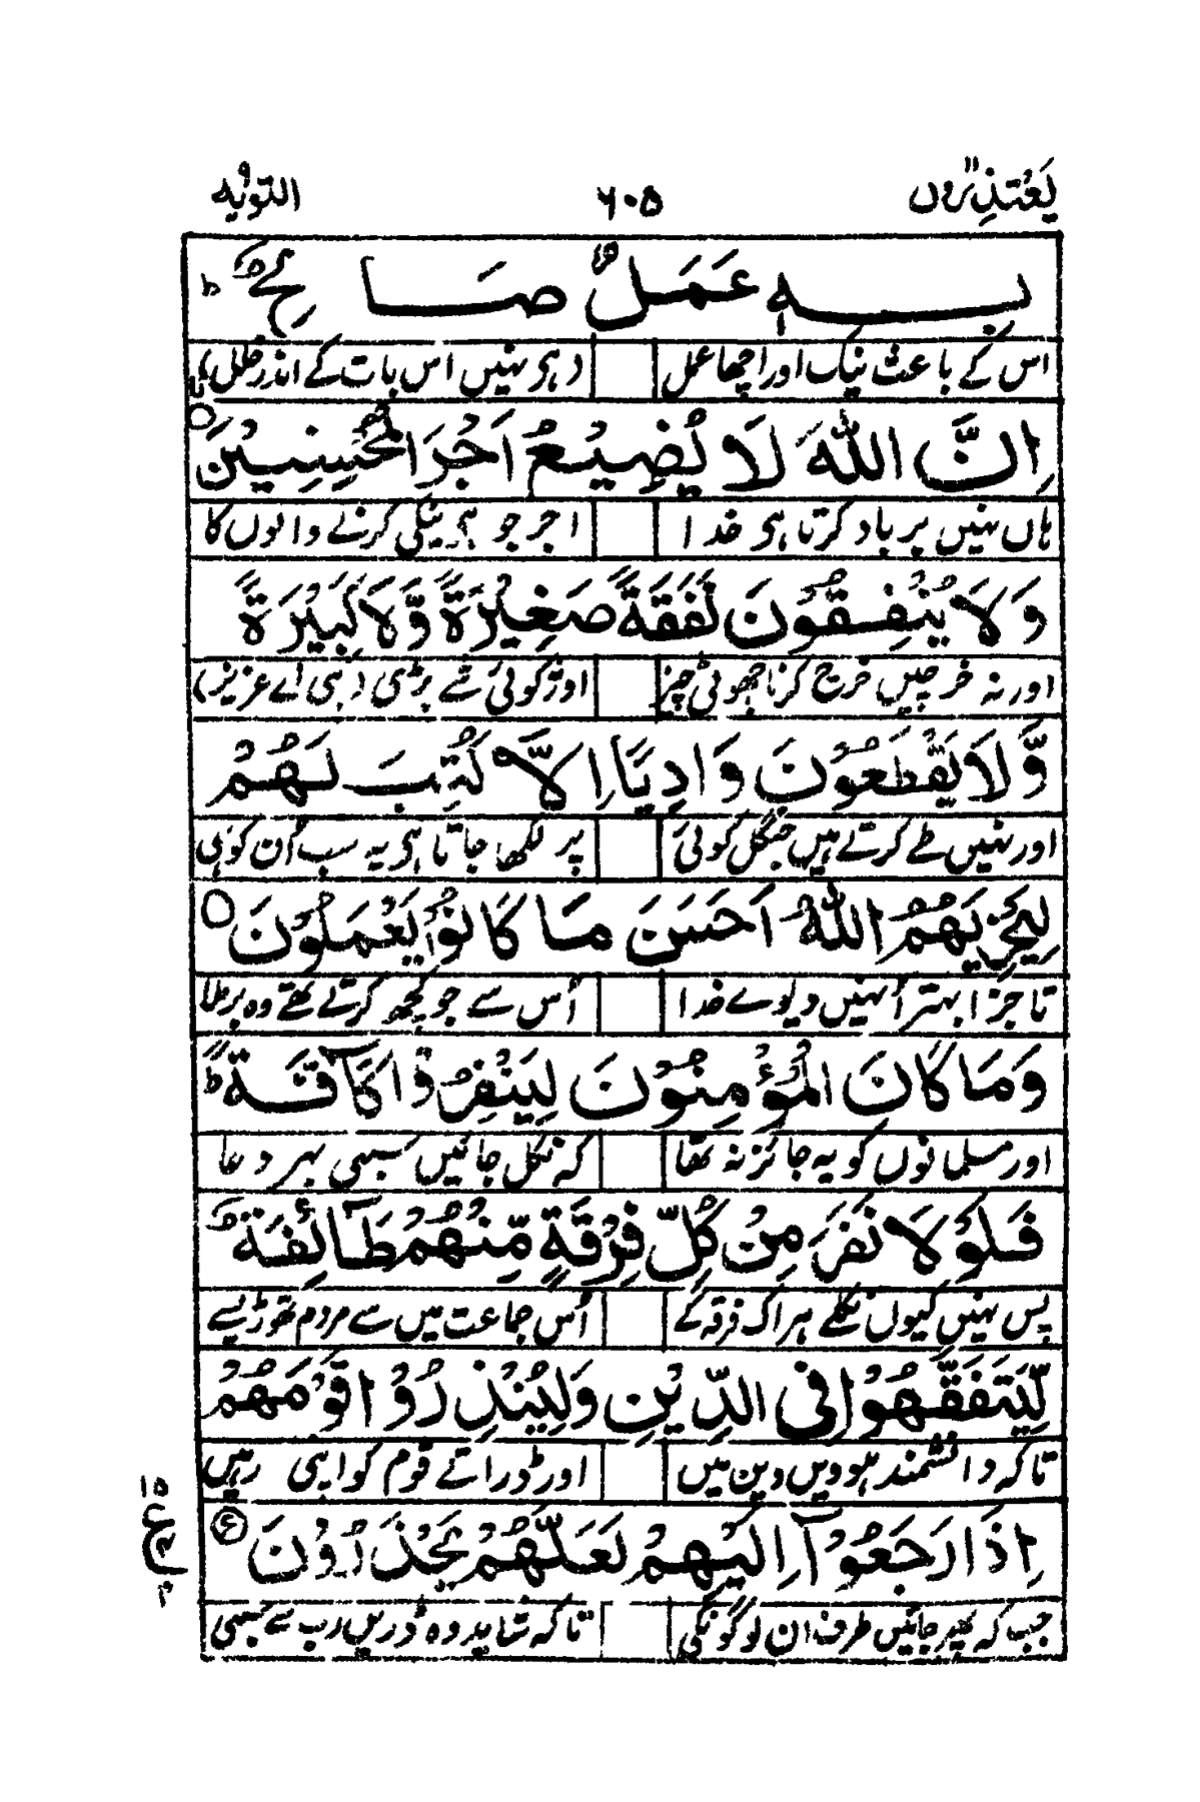 یَعْتَذِرُوْنَ ۱۱ ۶۰۵ التوبه ۹
بِهٖ عَمَلٌ صَالِحٌ ؕ
اس کے باعث نیک اور اچھا عمل دہی نہیں اس بات کے اندر خلل)
اِنَّ اللّٰهَ لَا یُضِیْعُ اَجْرَ الْمُحْسِنِیْنَ ○
ہاں نہیں برباد کرتا ہی خدا اجر جو ہی نیکی کرنے والوں کا
وَلَا یُنْفِقُوْنَ نَفَقَةً صَغِیْرَةً وَّلَا كَبِیْرَةً
اور نہ خرچیں خرچ کرنا چھوٹی چیز اور کوئی شے بڑی (ہی اے عزیز)
وَّلَا یَقْطَعُوْنَ وَادِیًا اِلَّا كُتِبَ لَهُمْ
اور نہیں طے کرتے ہیں جنگل کوئی پر لکھا جاتا ہی یہ سب اُن کو ہی
لِیَجْزِیَهُمُ اللّٰهُ اَحْسَنَ مَا كَانُوْا یَعْمَلُوْنَ ○
تا جزا بہتر اُنہیں دیوے خدا اُس سے جو کچھ کرتے تھے وہ برملا
وَمَا كَانَ الْمُؤْمِنُوْنَ لِیَنْفِرُوْا كَآفَّةً ؕ
اور مسلمانوں کو یہ جائز نہ تھا کہ نکل جائیں سبھی بہر دعا
فَلَوْلَا نَفَرَ مِنْ كُلِّ فِرْقَةٍ مِّنْهُمْ طَآئِفَةٌ
پس نہیں کیوں نکلے ہر اک فرقہ کے اُس جماعت میں سے مردم تھوڑے
لِّیَتَفَقَّهُوْا فِی الدِّیْنِ وَلِیُنْذِرُوْا قَوْمَهُمْ
تاکہ دانشمند ہوویں دین میں اور ڈراتے قوم کو اپنی رہیں
اِذَا رَجَعُوْٓا اِلَیْهِمْ لَعَلَّهُمْ یَحْذَرُوْنَ
۱۵ ع ۴
جب کہ پھر جائیں طرف ان لوگوں کی تاکہ شاید وہ ڈریں رب سے سبھی